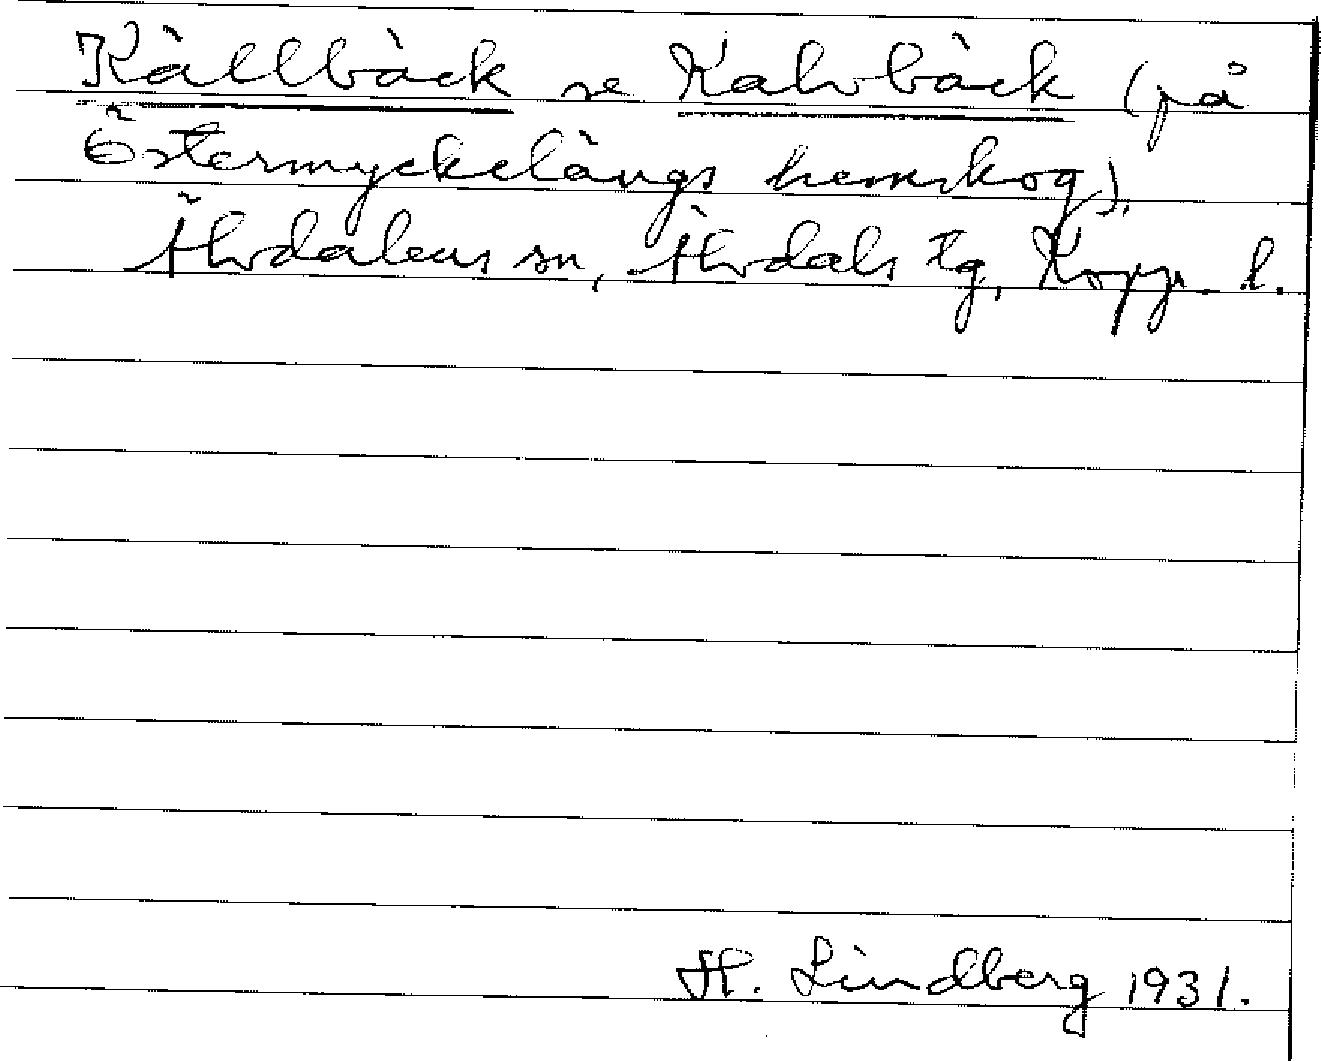 Källbäck se Kalvbäck (på
Östermyckelängs hemskog),
Älvdalens sn, Älvdals tg, Kopp. l.
H. Lindberg 1931.